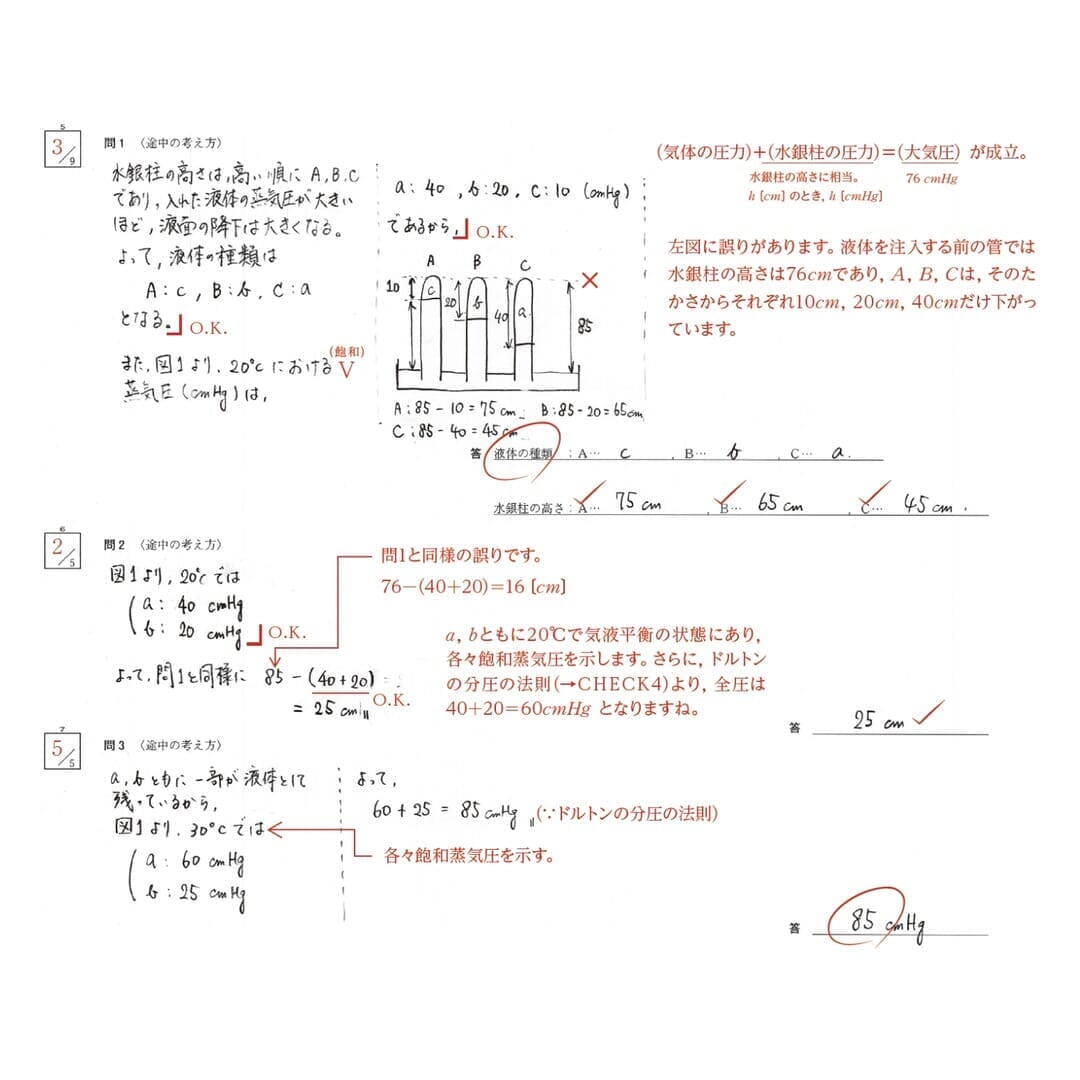 5
3/9
問1 〈途中の考え方〉
水銀柱の高さは,高い順に A,B,C
であり,入れた液体の蒸気圧が大きい
ほど,液面の降下は大きくなる。
よって,液体の種類は
A:c , B:b , C:a
となる。 O.K.
(飽和)
また,図1より,20℃における V
蒸気圧(cmHg)は,
a:40 , b:20 , c:10 (cmHg)
であるから, O.K.
A B C
10 c 20 b 40 a 85 ×
A:85-10=75cm B:85-20=65cm
C:85-40=45cm
(気体の圧力)+(水銀柱の圧力)=(大気圧) が成立。
水銀柱の高さに相当。 76 cmHg
h [cm] のとき, h [cmHg]
左図に誤りがあります。液体を注入する前の管では
水銀柱の高さは76cmであり, A, B, Cは, そのた
かさからそれぞれ10cm, 20cm, 40cmだけ下がっ
ています。
答 液体の種類 : A… c , B… b , C… a .
水銀柱の高さ : A… 75 cm , B… 65 cm , C… 45 cm .
6
2/5
問2 〈途中の考え方〉
図1より, 20℃では
a: 40 cmHg
b: 20 cmHg O.K.
よって,問1と同様に 85-(40+20)=
= 25 cm O.K.
問1と同様の誤りです。
76−(40+20)=16 [cm]
a, bともに20℃で気液平衡の状態にあり,
各々飽和蒸気圧を示します。さらに, ドルトン
の分圧の法則(→CHECK4)より, 全圧は
40+20=60cmHg となりますね。
答 25 cm
7
5/5
問3 〈途中の考え方〉
a,bともに一部が液体として
残っているから,
図1より,30℃では
a: 60 cmHg
b: 25 cmHg
よって,
60+25=85 cmHg (∵ドルトンの分圧の法則)
各々飽和蒸気圧を示す。
答 85 cmHg